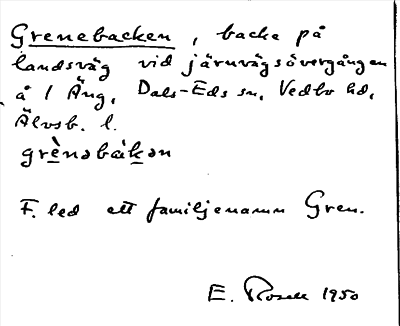 Grenebacken, backe på
landsväg vid järnvägsövergången
å 1 Äng, Dals-Eds sn, Vedbo hd,
Älvsb. l.
grènəbàkən
F. led ett familjenamn Gren.
E. Rosell 1950